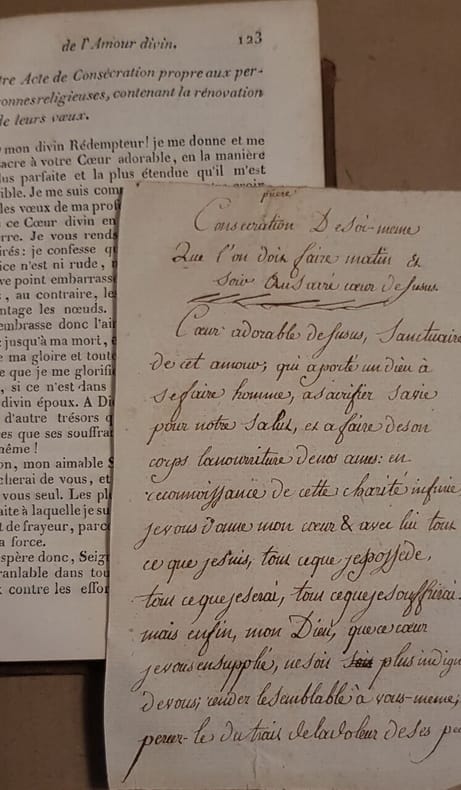 de l'Amour divin. 123
tre Acte de Consécration propre aux per-
onnes religieuses, contenant la rénovation
de leurs vœux.
mon divin Rédempteur! je me donne et me
sacre à votre Cœur adorable, en la manière
lus parfaite et la plus étendue qu'il m'est
ible. Je me suis com
les vœux de ma prof
ce Cœur divin en
rre. Je vous rends
irés: je confesse q
ice n'est ni rude, n
ve point embarrass
, au contraire, le
ntage les nœuds.
mbrasse donc l'ai
jusqu'à ma mort,
ma gloire et tout
e que je me glorifi
, si ce n'est dans
divin époux. A Di
d'autre trésors q
es que ses souffra
même!
on, mon aimable S
cherai de vous, et
vous seul. Les pl
aite à laquelle je su
t de frayeur, parc
a force.
spère donc, Seig
ranlable dans tou
contre les effor
priere
Consecration De soi-meme
Que l'on doit faire matin &
soir Au sacré cœur de Jesus
Cœur adorable de Jesus, Sanctuaire
de cet amour; qui a porté un dieu à
se faire homme, a sacrifier sa vie
pour notre salut, et a faire de son
corps la nourriture de nos ames: en
reconnoissance de cette charité infinie
je vous donne mon cœur & avec lui tout
ce que je suis, tout ce que je possède,
tout ce que je serai, tout ce que je souffrirai.
mais enfin, mon Dieu, que ce cœur
je vous en supplie, ne soit plus indign
de vous; rendez le semblable à vous-meme;
percez-le du trait de la doleur de ses pe